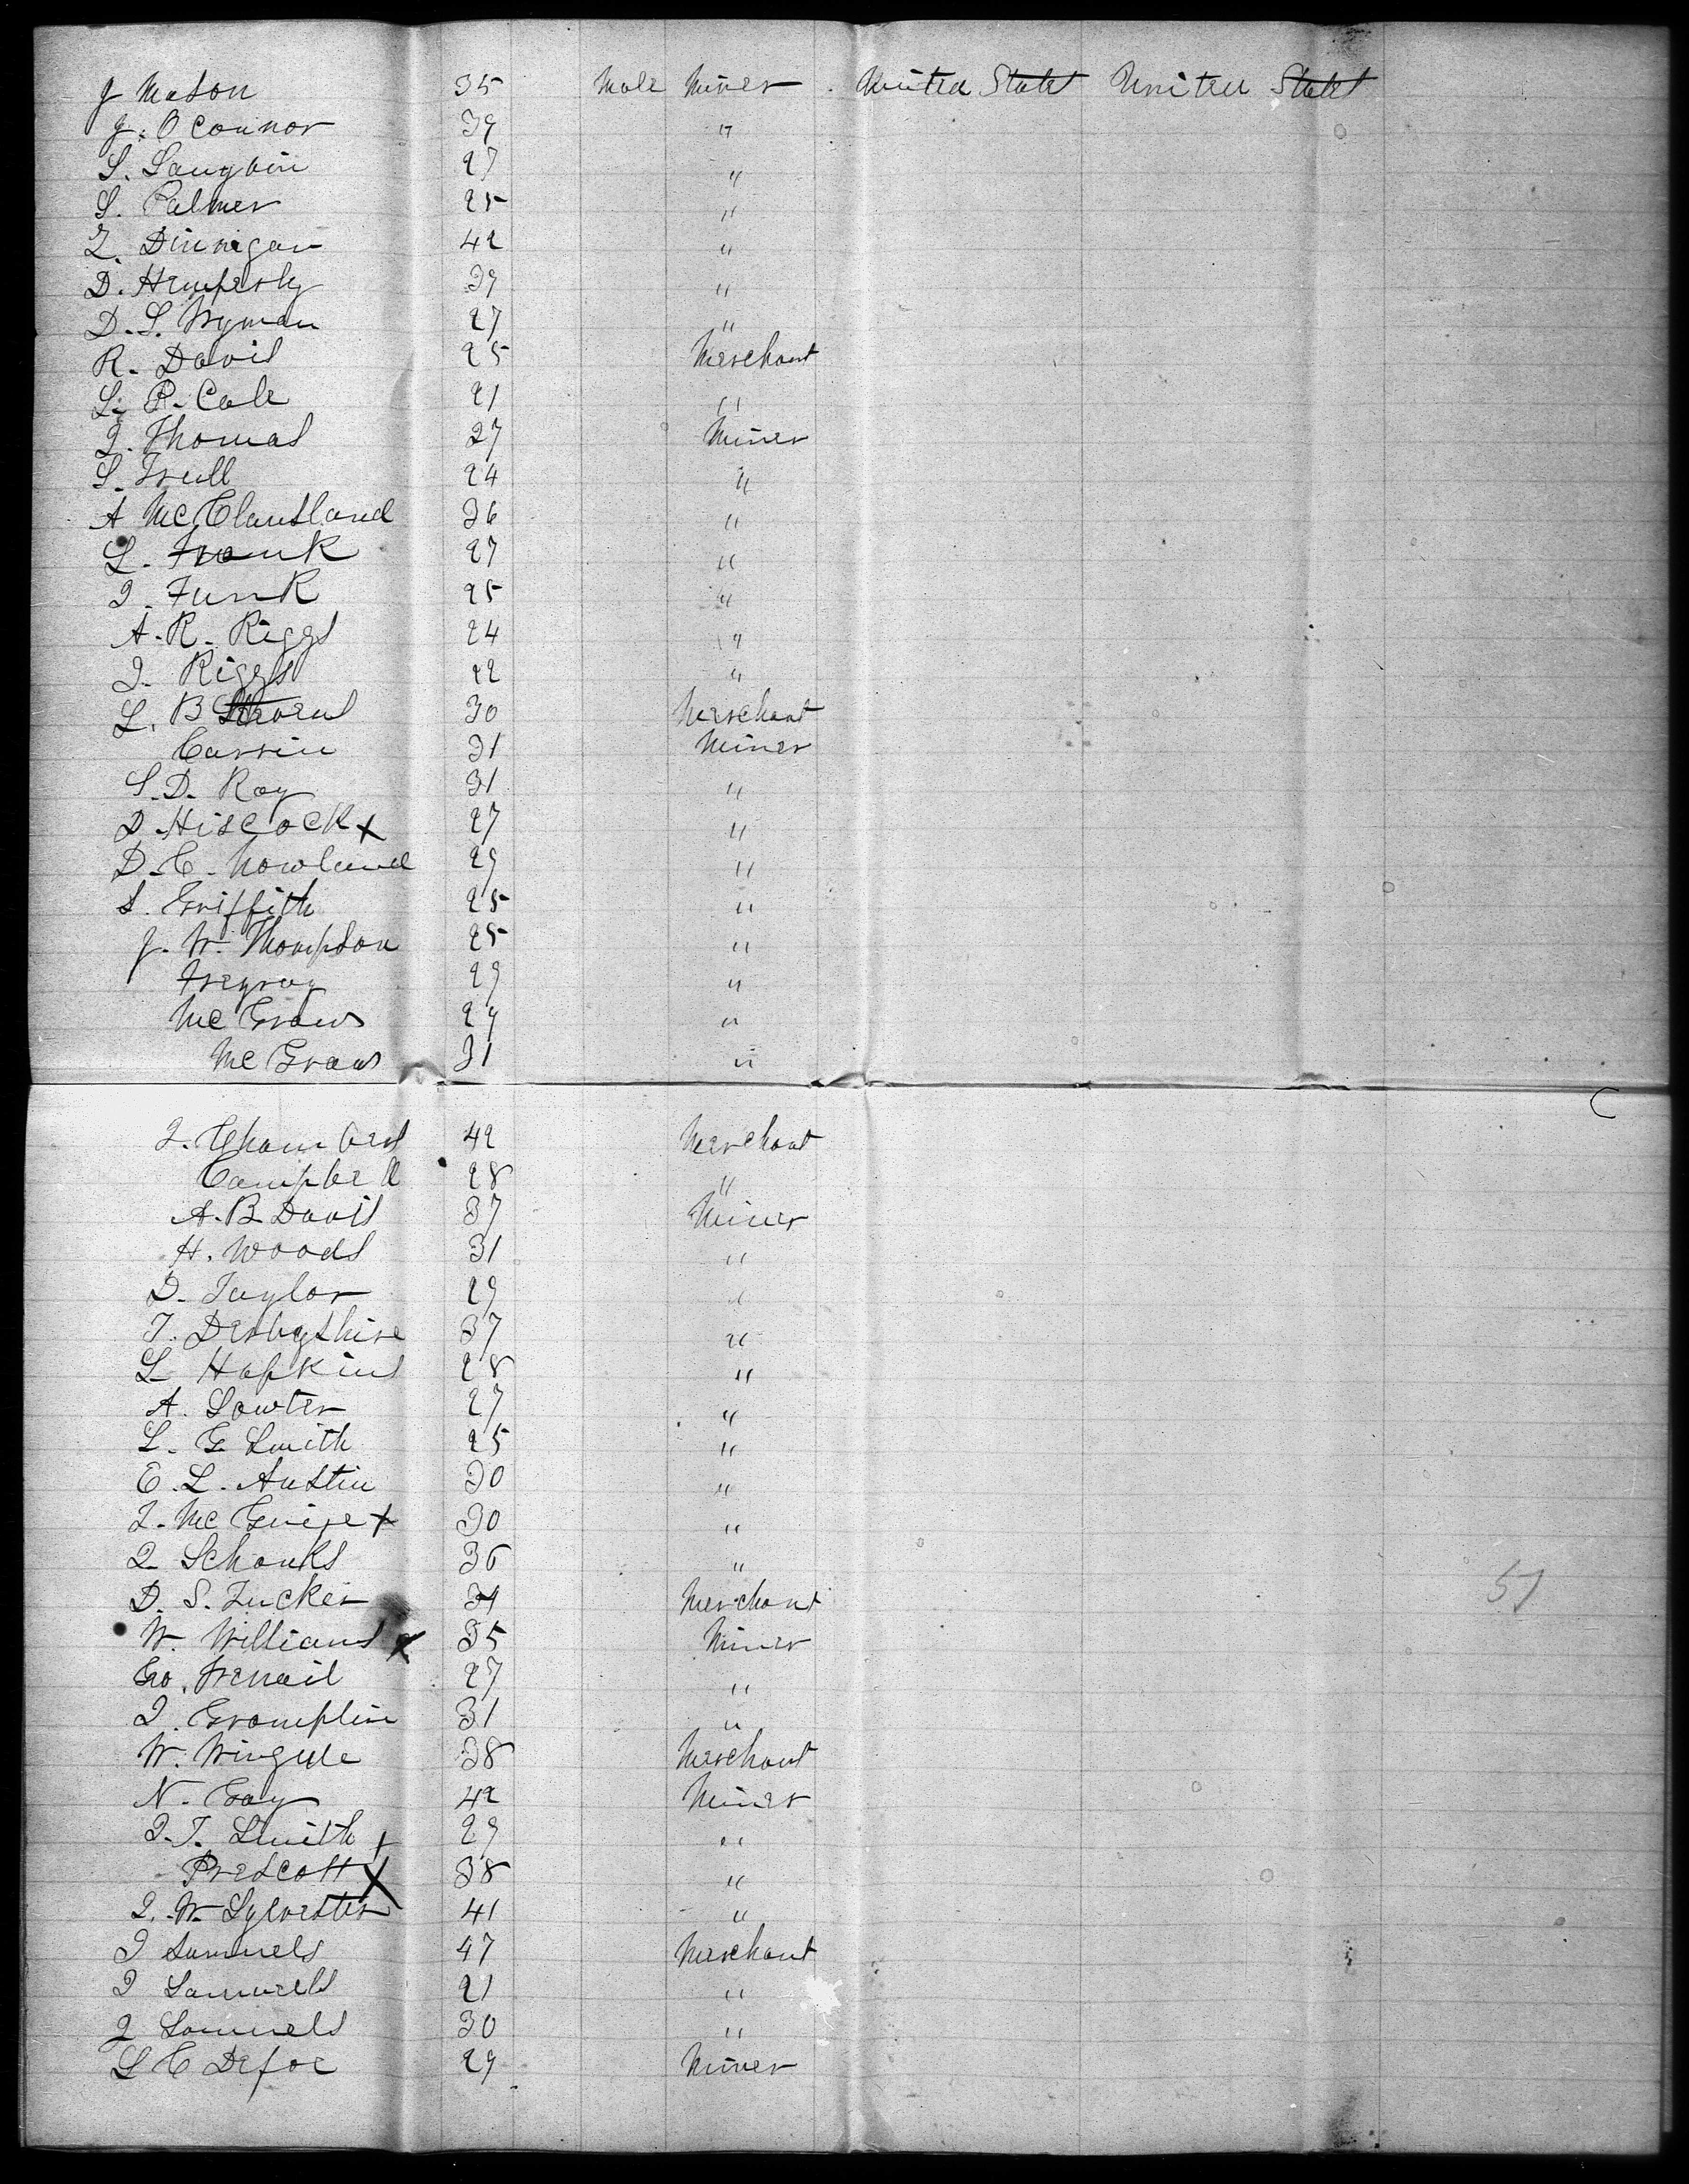 J Mason 35 Male Miner United States United States
J. O Connor 39 "
S. Sangvin 27 "
S. Palmer 25 "
Z. Dinnigan 42 "
D. Hempesly 39 "
D. S. Wyman 27 "
R. Davis 25 Merchant
L. P. Cole 21 "
J. Thomas 27 Miner
S. Trull 24 "
A McClausland 36 "
L. Frank 27 "
J. Funk 25 "
A. R. Riggs 24 "
J. Riggs 22 "
L. B Stevens 30 Merchant
Cassin 31 Miner
S. D. Ray 31 "
D. Hiscock x 27 "
D. C. Nowland 29 "
S. Griffith 25 "
J. W. Thompson 25 "
29 "
Mc Graws 29 "
Mc Graws 31 "
J. Chambers 42 Merchant
Campbell 28 "
A. B. Davis 37 Miner
H. Woods 31 "
D. Taylor 29 "
T. Derbyshire 37 "
L Hopkins 28 "
A. Sowter 27 "
L. G. Smith 25 "
E. L. Austin 30 "
J. Mc Guire x 30 "
J. Schanks 36 "
D. S. Tucker 34 Merchant
W. Williams x 35 Miner
Geo. 27 "
J. Gramplin 31 "
W. Wingule 38 Merchant
N. Gay 42 Miner
J. T. Smith x 29 "
Prescott x 38 "
J. W. Sylvester 41 "
J Samuels 47 Merchant
J Samuels 21 "
J Samuels 30 "
L C Defoe 29 Miner
51